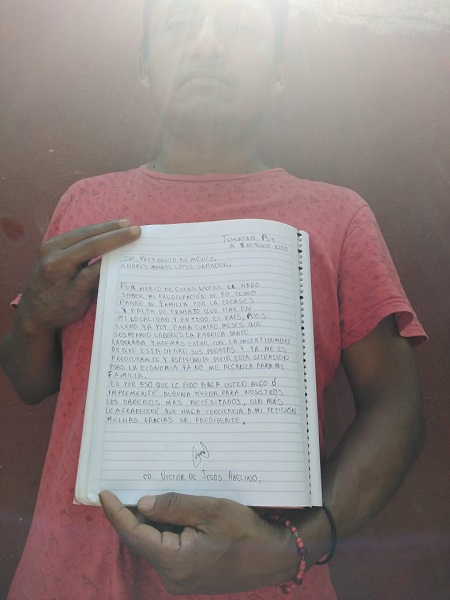 TEHUACÁN, PUE.
A 5 OCTUBRE 2020
SR. PRESIDENTE DE MÉXICO.
ANDRES MANUEL LÓPEZ OBRADOR.
POR MEDIO DE ESTAS LINEAS LE HAGO
SABER MI PREOCUPACIÓN DE YO COMO
PADRE DE FAMILIA POR LA ESCASES
Y FALTA DE TRABAJO QUE HAY EN
MI LOCALIDAD Y EN TODO EL PAIS, PUES
LLEVO YA POR PARA CUATRO MESES QUE
SUSPENDIO LABORES LA FABRICA DONTE
LABORABA Y AREMAS ESTAR CON LA INCERTIDUMBRE
DE QUE ESTA CIERRE SUS PUERTAS Y YA ME ES
PREOCUPANTE Y ASFIXIANTE VIVIR ESTA SITUACIÓN
PUES LA ECONOMIA YA NO ME ALCANZA PARA MI
FAMILIA.
ES POR ESO QUE LE PIDO HAGA USTED ALGO Ó
IMPLEMENTE ALGUNA AYUDA PARA NOSOTROS
LOS OBREROS MAS NECESITADOS, SIN MAS
LE AGRADECERÉ QUE HAGA CONCIENCIA A MI PETICIÓN
MUCHAS GRACIAS SR. PRESIDENTE.
VICTOR DE JESÚS ABELINO.